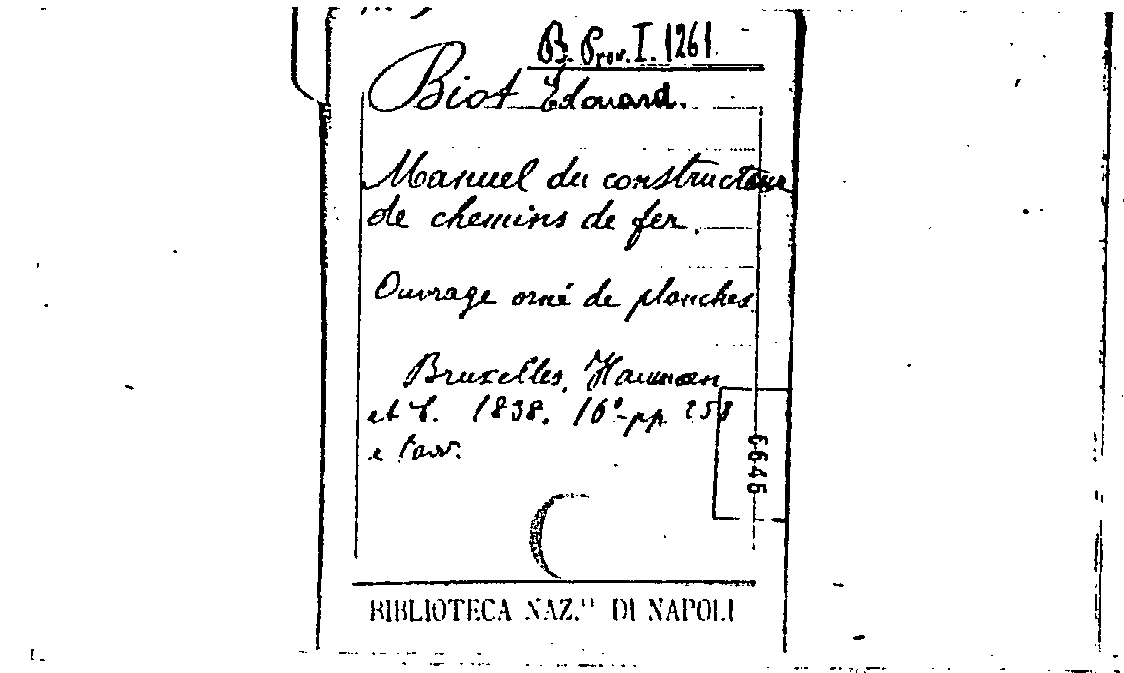 B. Prov. I. 1261
Biot Édouard.
Manuel du constructeur
de chemins de fer.
Ouvrage orné de planches
Bruxelles, Hauman
et C. 1838. 16°-pp 258
e tav.
6645
BIBLIOTECA NAZ. DI NAPOLI